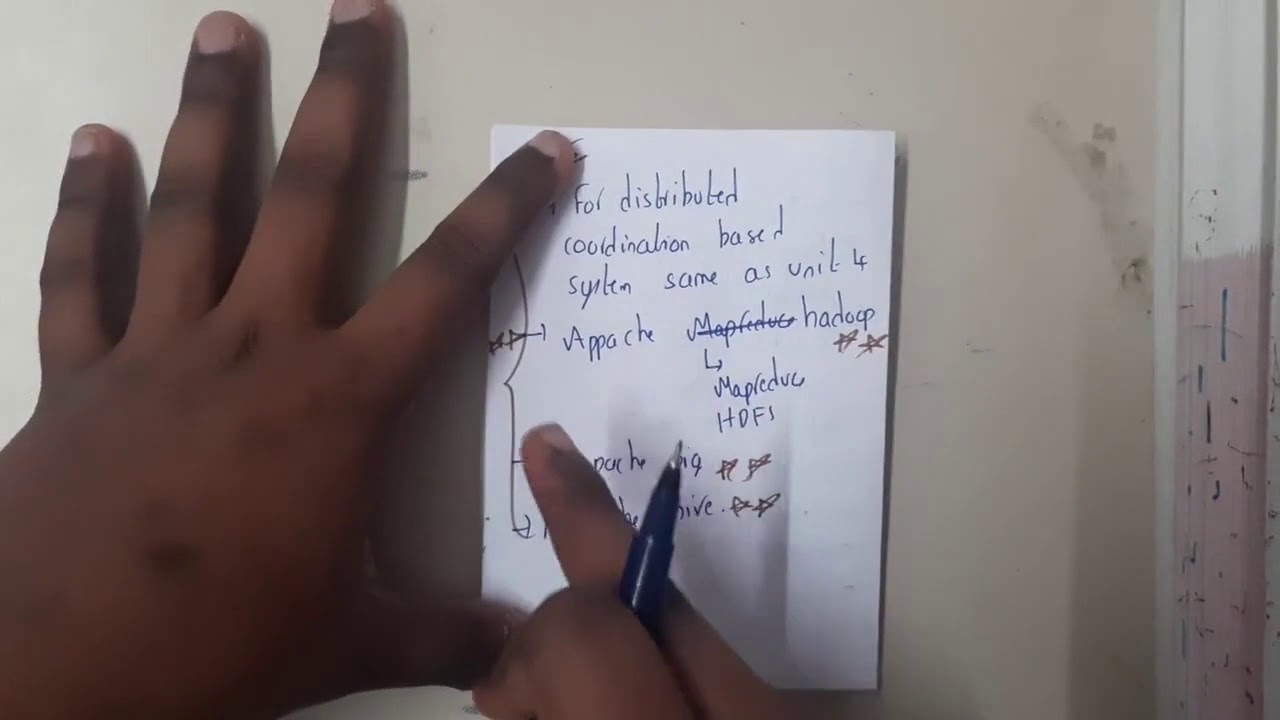 For distributed
coordination based
system same as unit 4
Appache Mapreduce hadoop
Mapreduce
HDFS
hive.